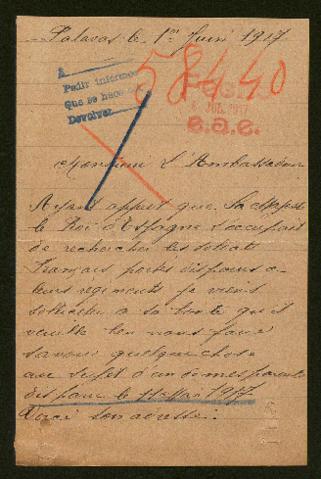 Palavas le 1er Juin 1917
A
Pedir informes
Que se hace
Devolver
58440
JUL. 1917
e.a.e.
Monsieur l'Ambassadeur
Ayant appris que Sa Majesté
le Roi d'Espagne s'occupait
de rechercher les soldats
français portés disparus a
leurs regiments je viens
solliciter a sa bonté qu'il
veuille bien nous faire
savoir quelque chose
au sujet d'un de mes parents
disparu le 11 Mai 1917
Voici son adresse :